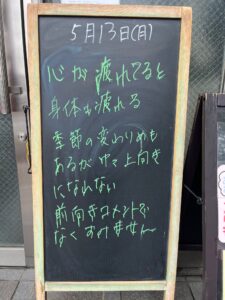 5月13日(月)
心が疲れてると
身体も疲れる
季節の変わりめも
あるが中々上向き
になれない
前向きコメントで
なくすみません